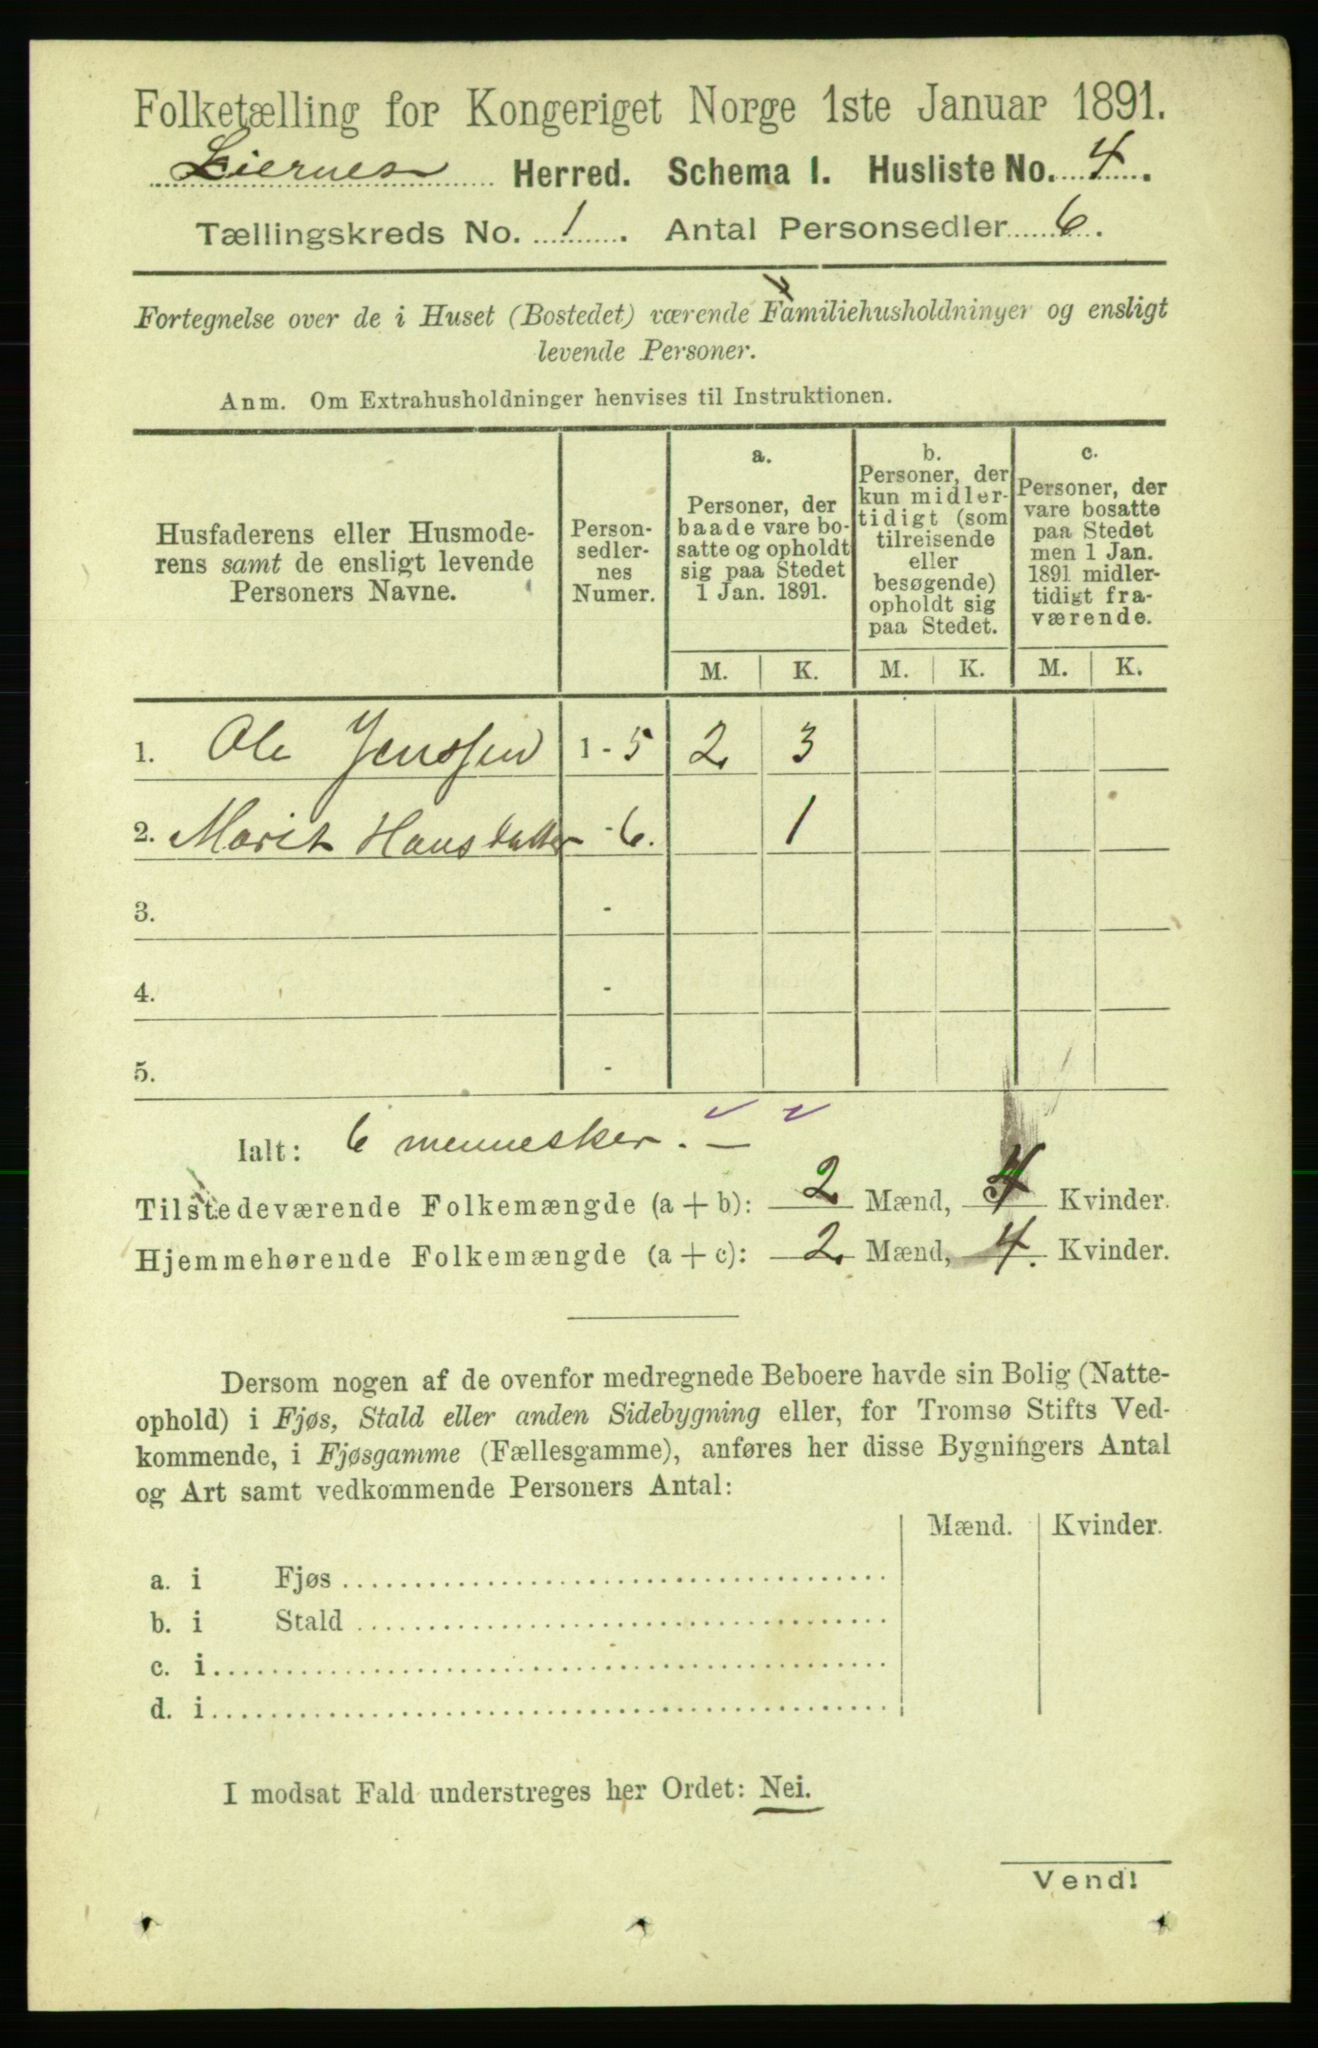 Folketælling for Kongeriget Norge 1ste Januar 1891.
Liernes Herred. Schema I. Husliste No. 4.
Tællingskreds No. 1. Antal Personsedler 6.
Fortegnelse over de i Huset (Bostedet) værende Familiehusholdninger og ensligt
levende Personer.
Anm. Om Extrahusholdninger henvises til Instruktionen.
Husfaderens eller Husmode-
rens samt de ensligt levende
Personers Navne.
Person-
sedler-
nes
Numer.
a.
Personer, der
baade vare bo-
satte og opholdt
sig paa Stedet
1 Jan. 1891.
b.
Personer, der
kun midler-
tidigt (som
tilreisende
eller
besøgende)
opholdt sig
paa Stedet.
c.
Personer, der
vare bosatte
paa Stedet
men 1 Jan.
1891 midler-
tidigt fra-
værende.
M. K. M. K. M. K.
1. Ole Jenssen 1 - 5 2 3
2. Marit Hansdatter - 6. 1
3. -
4. -
5. -
Ialt: 6 mennesker. —
Tilstedeværende Folkemængde (a + b): 2 Mænd, 4 Kvinder.
Hjemmehørende Folkemængde (a + c): 2 Mænd, 4. Kvinder.
Dersom nogen af de ovenfor medregnede Beboere havde sin Bolig (Natte-
ophold) i Fjøs, Stald eller anden Sidebygning eller, for Tromsø Stifts Ved-
kommende, i Fjøsgamme (Fællesgamme), anføres her disse Bygningers Antal
og Art samt vedkommende Personers Antal:
Mænd. Kvinder.
a. i Fjøs
b. i Stald
c. i
d. i
I modsat Fald understreges her Ordet: Nei.
Vend!